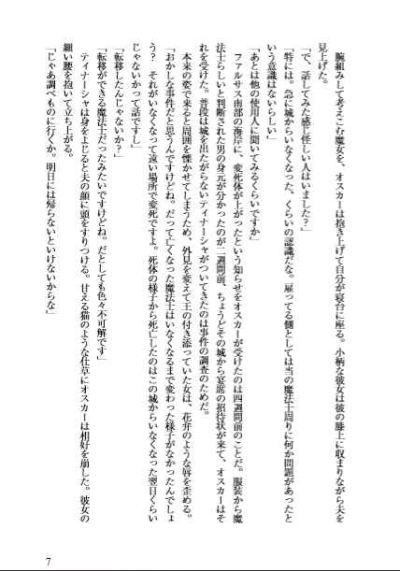 腕組みして考えこむ魔女を、オスカーは抱き上げて自分が寝台に座る。小柄な彼女は彼の膝上に収まりながら夫を
見上げた。
「で、話してみた感じ怪しい人はいました？」
「特には。急に城からいなくなった、くらいの認識だな。雇ってる側としては当の魔法士周りに何か問題があったと
いう意識はないらしい」
「あとは他の使用人に聞いてみるくらいですか」
ファルサス南部の海岸に、変死体が上がったという知らせをオスカーが受けたのは四週間前のことだ。服装から魔
法士らしいと判断された男の身元が分かったのが二週間前、ちょうどその城から宴席の招待状が来て、オスカーはそ
れを受けた。普段は城を出たがらないティナーシャがついてきたのは事件の調査のためだ。
本来の姿で来ると周囲を慄かせてしまうため、外見を変えて王の付き添っていた女は、花弁のような唇を歪める。
「おかしな事件だと思うんですけどね。だって亡くなった魔法士はいなくなるまで変わった様子がなかったんでしょ
う？　それがいなくなって遠い場所で変死ですよ。死体の様子から死亡したのはこの城からいなくなった翌日くらい
じゃないかって話ですし」
「転移したんじゃないか？」
「転移ができる魔法士だったみたいですけどね。だとしても色々不可解です」
ティナーシャは身をよじると夫の顔に頭をすりつける。甘える猫のような仕草にオスカーは相好を崩した。彼女の
細い腰を抱いて立ち上がる。
「じゃあ調べものに行くか。明日には帰らないといけないからな」
7